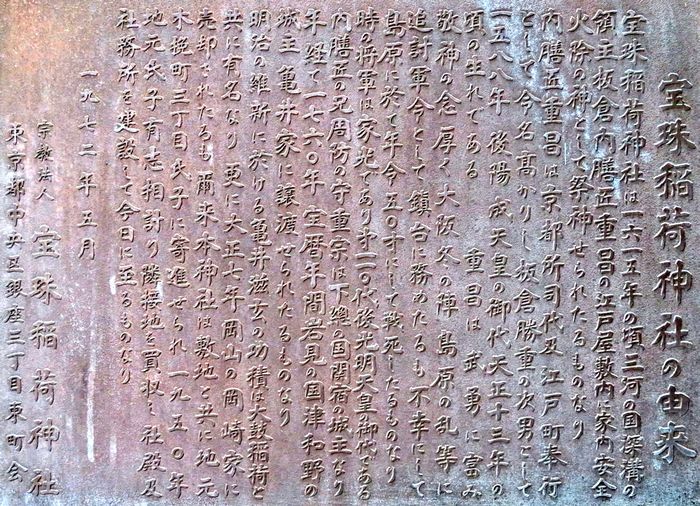 宝珠稲荷神社の由来
宝珠稲荷神社は一六一五年の頃三河の国深溝の
領主板倉内膳正重昌の江戸屋敷内に家内安全
火除の神として祭神せられたるものなり
内膳正重昌は京都所司代及江戸町奉行
として今名高かりし板倉勝重の次男として
一五八八年後陽成天皇の御代天正十三年の
頃の生れである　重昌は武勇に富み
敬神の念厚く大阪冬の陣島原の乱等に
追討軍令として鎮台に務めたるも不幸にして
島原に於て年令五〇才にして戦死したるものなり
時の将軍は家光であり才一一〇代後光明天皇御代である
内膳正の兄周防の守重宗は下總の国関宿の城主なり
年経て一七六〇年宝暦年間岩見の国津和野の
城主亀井家に譲渡せられたるものなり
明治の維新に於ける亀井滋玄の功積は大鼓稲荷と
共に有名なり更に大正七年岡山の岡崎家に
売却されたるも爾来本神社は敷地と共に地元
木挽町三丁目氏子に寄進せられ一九五〇年
地元氏子有志相計り隣接地を買収し社殿及
社務所を建設して今日に至るものなり
一九七二年五月
宗教法人　宝珠稲荷神社
東京都中央区銀座三丁目東町会